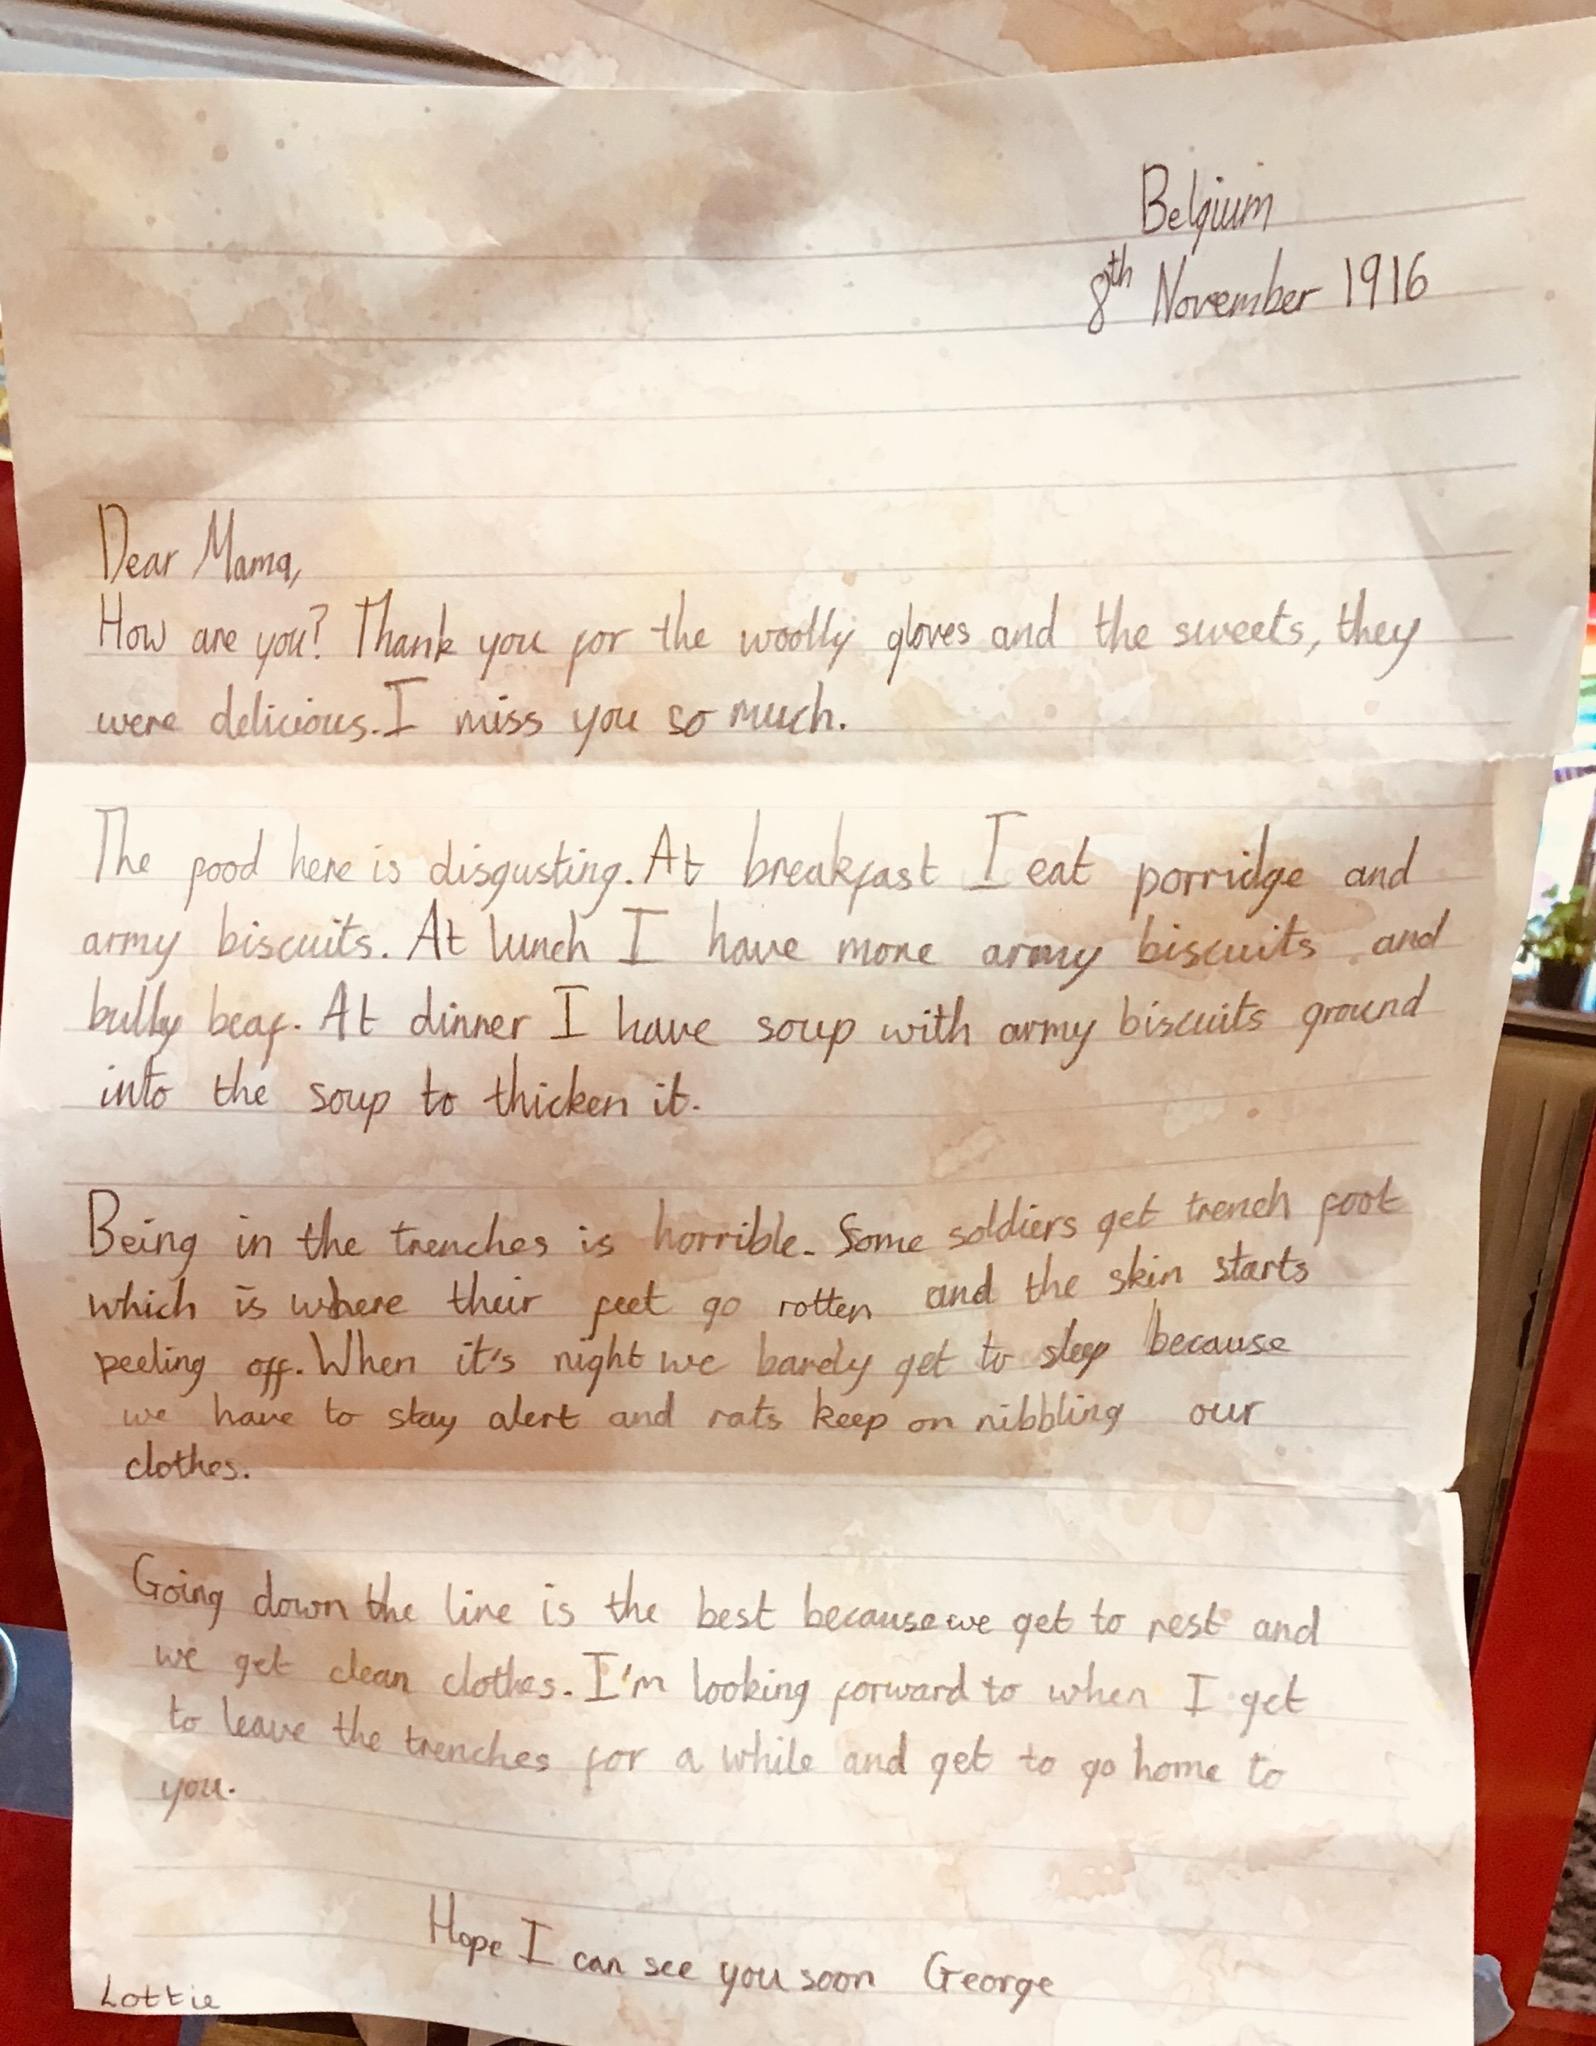 Belgium
8th November 1916
Dear Mama,
How are you? Thank you for the woolly gloves and the sweets, they
were delicious. I miss you so much.
The food here is disgusting. At breakfast I eat porridge and
army biscuits. At lunch I have more army biscuits and
bully beaf. At dinner I have soup with army biscuits ground
into the soup to thicken it.
Being in the trenches is horrible. Some soldiers get trench foot
which is where their feet go rotten and the skin starts
peeling off. When it's night we barely get to sleep because
we have to stay alert and rats keep on nibbling our
clothes.
Going down the line is the best because we get to rest and
we get clean clothes. I'm looking forward to when I get
to leave the trenches for a while and get to go home to
you.
Hope I can see you soon George
Lottie